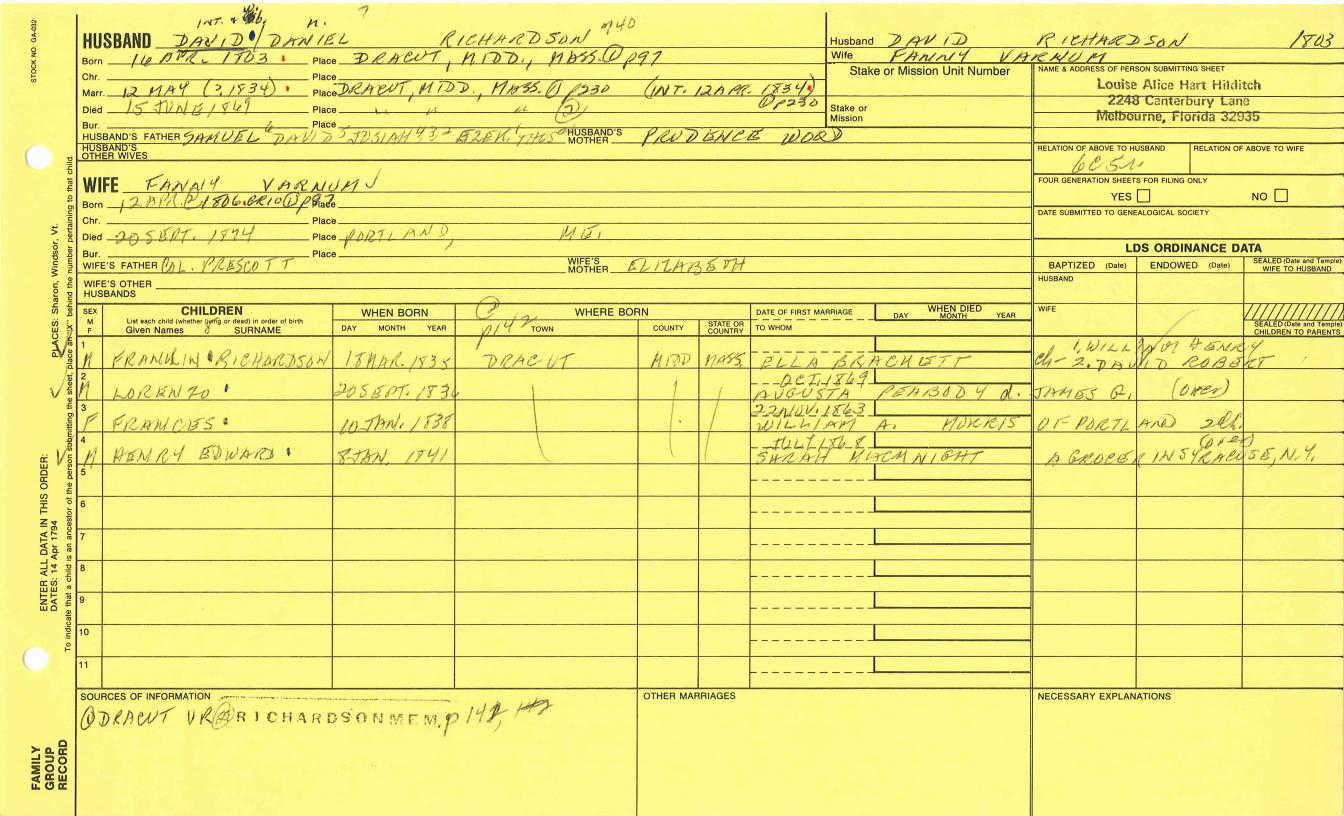 INT. & M. ?
HUSBAND DAVID / DANIEL RICHARDSON 740
Born 16 APR. 1803 Place DRACUT, MIDD., MASS. ① p97
Chr. Place
Marr. 12 MAY (?.1834) Place DRACUT, MIDD., MASS. ① p230 (INT. 12 APR. 1834)
① p230
Died 15 JUNE 1869 Place " " " ②
Bur. Place
HUSBAND'S FATHER SAMUEL DAVID JOSIAH EZEK THOS HUSBAND'S MOTHER PRUDENCE WORD
HUSBAND'S OTHER WIVES
WIFE FANNY VARNUM
Born 12 APR. 1806. GR10 ① p97 Place
Chr. Place
Died 20 SEPT. 1874 Place PORTLAND, ME.
Bur. Place
WIFE'S FATHER COL. PRESCOTT WIFE'S MOTHER ELIZABETH
WIFE'S OTHER HUSBANDS
Husband DAVID RICHARDSON 1803
Wife FANNY VARNUM
Stake or Mission Unit Number
Stake or Mission
NAME & ADDRESS OF PERSON SUBMITTING SHEET
Louise Alice Hart Hilditch
2248 Canterbury Lane
Melbourne, Florida 32935
RELATION OF ABOVE TO HUSBAND RELATION OF ABOVE TO WIFE
6C5R
FOUR GENERATION SHEETS FOR FILING ONLY
YES NO
DATE SUBMITTED TO GENEALOGICAL SOCIETY
LDS ORDINANCE DATA
BAPTIZED (Date) ENDOWED (Date) SEALED (Date and Temple) WIFE TO HUSBAND
HUSBAND
WIFE
SEALED (Date and Temple) CHILDREN TO PARENTS
SEX M F CHILDREN WHEN BORN WHERE BORN DATE OF FIRST MARRIAGE WHEN DIED
List each child (whether living or dead) in order of birth
Given Names SURNAME DAY MONTH YEAR TOWN COUNTY STATE OR COUNTRY TO WHOM DAY MONTH YEAR
② p142
1 M FRANKLIN RICHARDSON 18 MAR. 1835 DRACUT MIDD MASS. ELLA BRACKETT ch- 1, WILLIAM HENRY
2. DAVID ROBERT
2 M LORENZO 20 SEPT. 1836 OCT. 1869
AUGUSTA PEABODY d. JAMES G. (over)
3 F FRANCES 10 JAN. 1838 22 NOV. 1863
WILLIAM A. MORRIS OF PORTLAND 2ch.
(over)
4 M HENRY EDWARD 8 JAN. 1841 JULY 1868
SARAH MACKNIGHT A GROCER IN SYRACUSE, N.Y.
5
6
7
8
9
10
11
SOURCES OF INFORMATION
① DRACUT VR ② RICHARDSON MEM. p 142,
OTHER MARRIAGES
NECESSARY EXPLANATIONS
STOCK NO. GA-032
ENTER ALL DATA IN THIS ORDER:
DATES: 14 Apr 1794 PLACES: Sharon, Windsor, Vt.
To indicate that a child is an ancestor of the person submitting the sheet, place an "X" behind the number pertaining to that child.
FAMILY GROUP RECORD